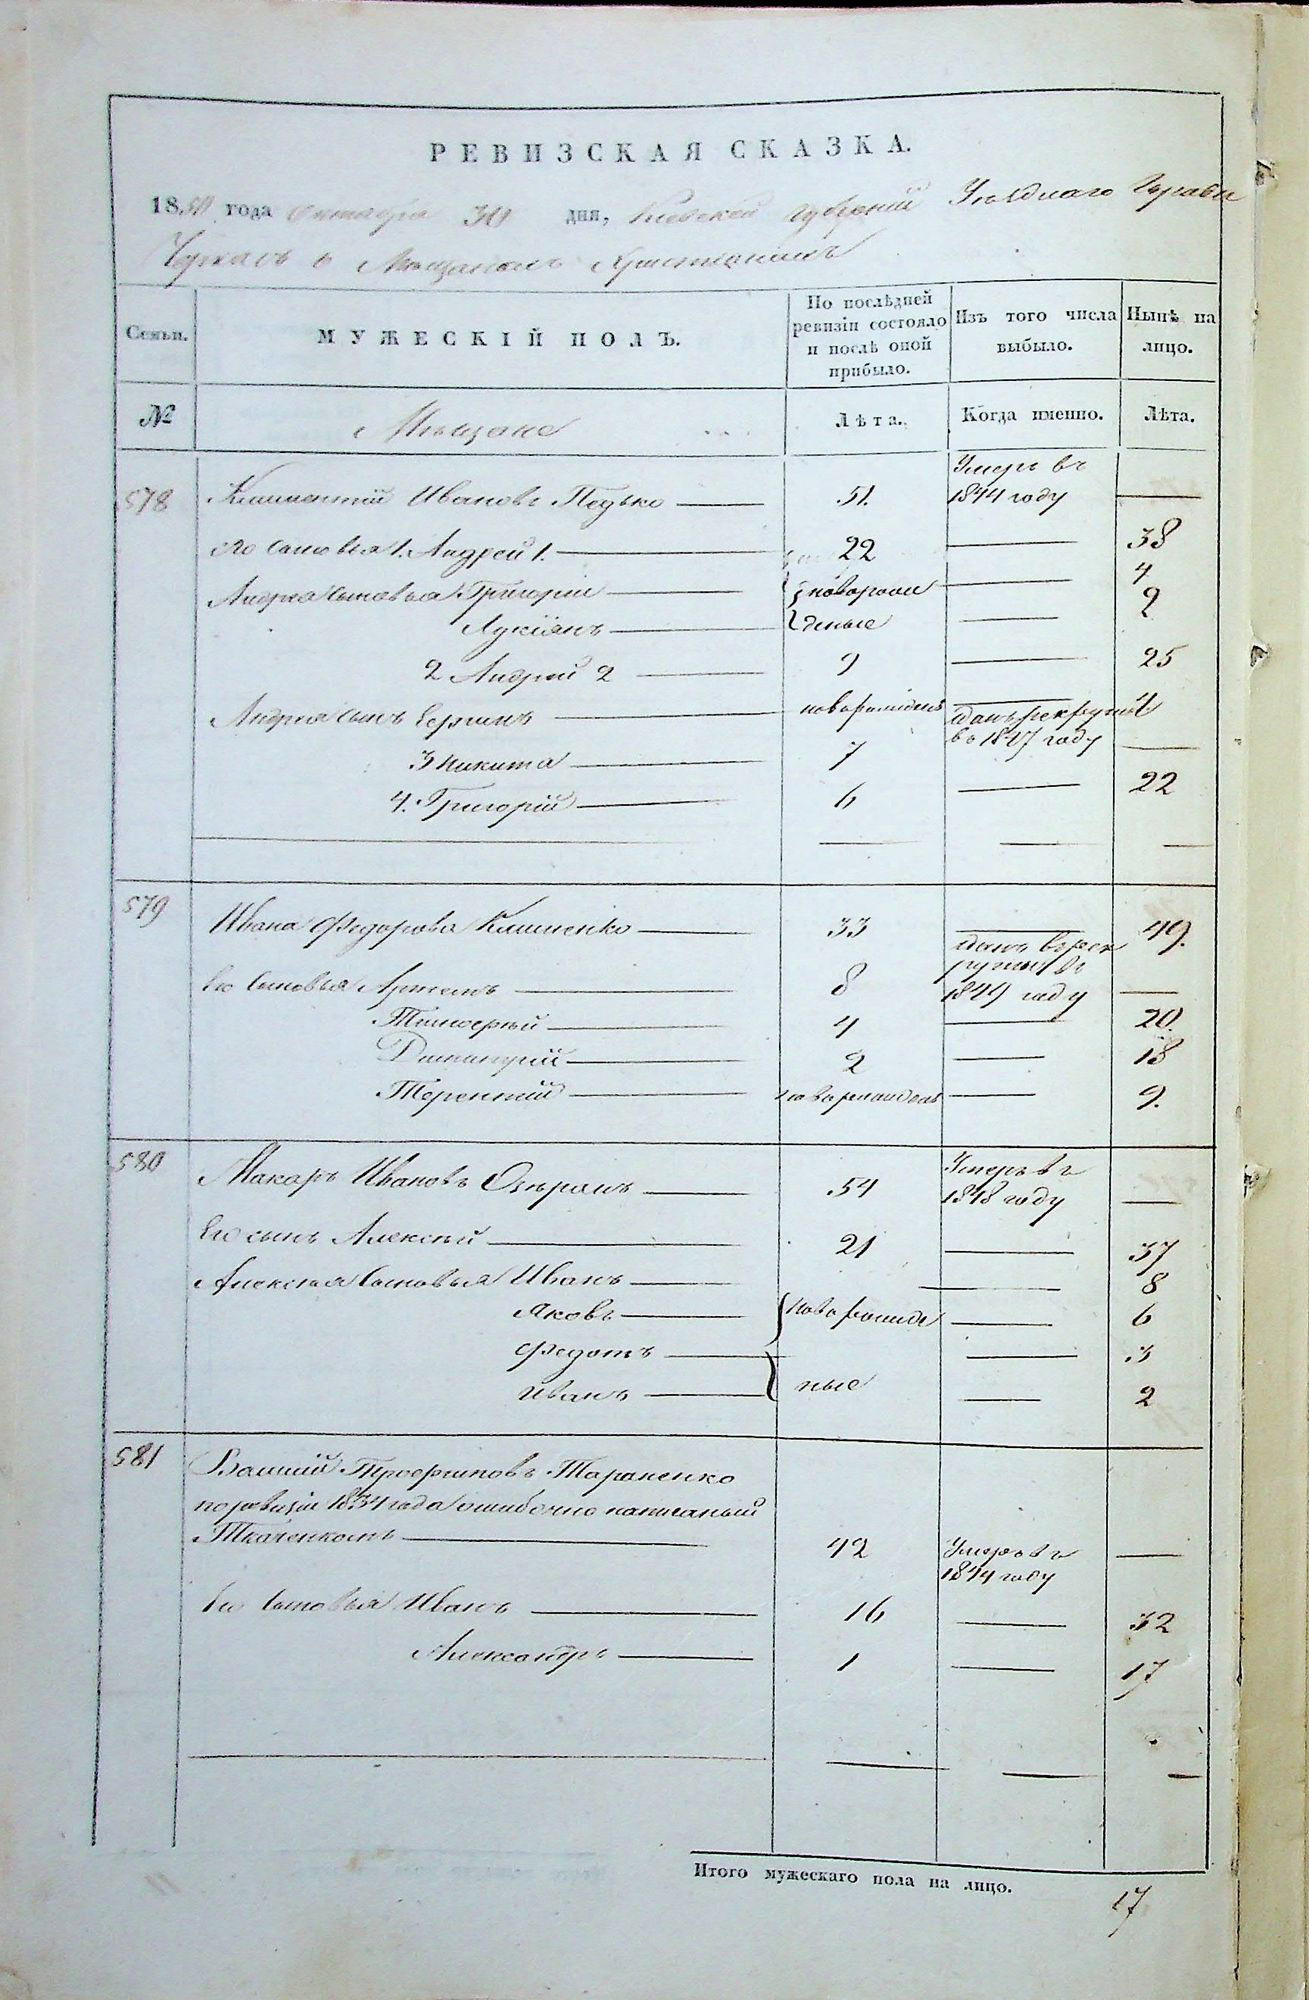 РЕВИЗСКАЯ СКАЗКА.
1850 года Октября 30 дня, Киевской губернии Уезднаго Города
Черкасъ о Мещанахъ Христіанахъ
Семьи. МУЖЕСКІЙ ПОЛЪ. По послѣдней ревизіи состояло и послѣ оной прибыло. Изъ того числа выбыло. Нынѣ на лицо.
№ Мещане Лѣта. Когда именно. Лѣта.
578 Климентий Ивановъ Педько 51. Умеръ въ 1844 году
его сыновья 1. Андрей 1. 22 38
Андрея сыновья Григорій новорож 4
Лукіянъ деные 2
2 Андрей 2 9 25
Андрея сынъ новорожденъ 4
3 Никита 7 сданъ рекруты въ 1847 году
4. Григорій 6 22
579 Ивана Федорова Клименко 33 49.
Его сыновья Артемъ 8 сданъ въ рек руты въ 1849 году
Тимофей 4 20.
Димитрій 2 18
Терентій новорожденъ 9.
580 Макаръ Ивановъ 54 Умеръ въ 1848 году
Его сынъ Алексѣй 21 37
Алексѣя сыновья Иванъ 8
Яковъ новорожде 6
Федотъ 3
Иванъ ные 2
581 Василій Трофимовъ Тараненко
по ревизіи 1834 года ошибочно написаный
Ткаченкомъ 42 Умеръ въ 1844 году
Его сыновья Иванъ 16 32
Александръ 1 17
Итого мужескаго пола на лицо. 17